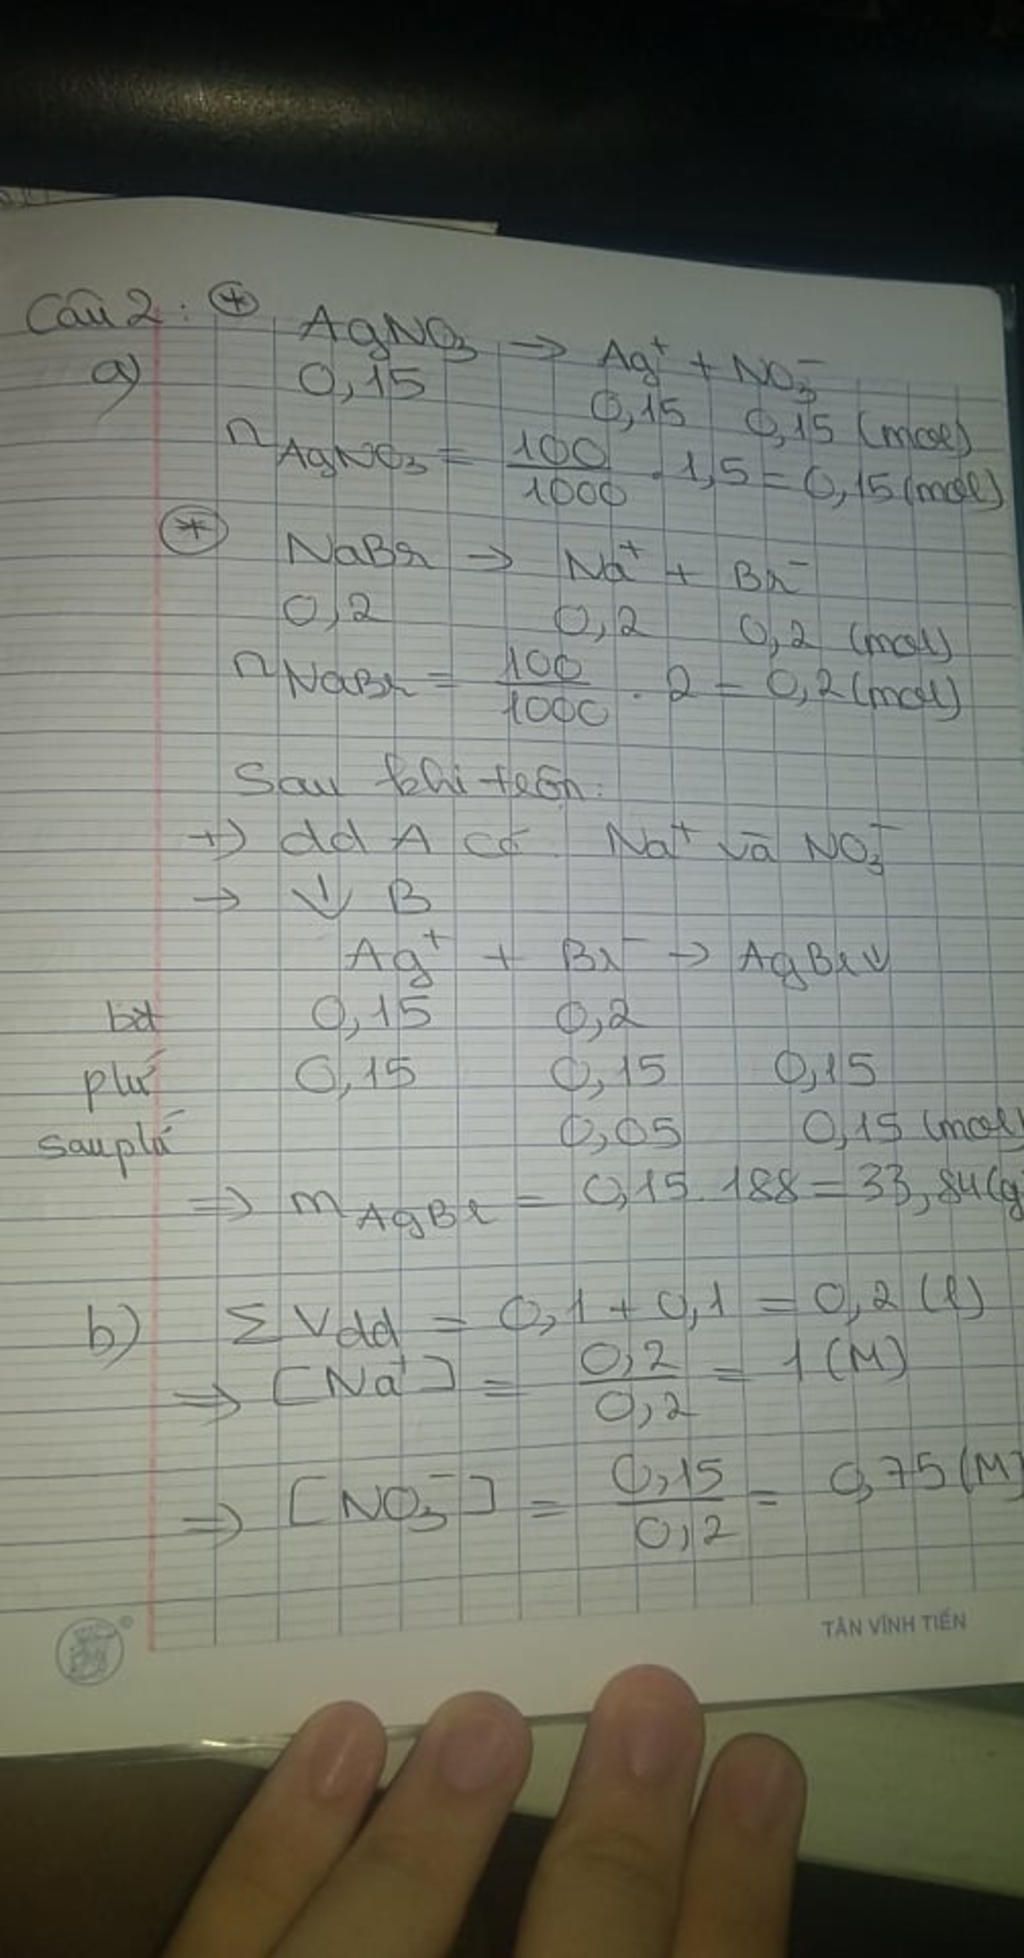 Câu 2: * AgNO3 → Ag+ + NO3-
a) 0,15 0,15 0,15 (mol)
nAgNO3 = 100/1000 . 1,5 = 0,15 (mol)
* NaBr → Na+ + Br-
0,2 0,2 0,2 (mol)
nNaBr = 100/1000 . 2 = 0,2 (mol)
Sau khi trộn:
+) dd A có Na+ và NO3-
→ ↓ B
Ag+ + Br- → AgBr↓
bđ 0,15 0,2
pư 0,15 0,15 0,15
sau pứ 0,05 0,15 (mol)
=> mAgBr = 0,15 . 188 = 33,84 (g
b) ΣVdd = 0,1 + 0,1 = 0,2 (l)
=> [Na+] = 0,2/0,2 = 1 (M)
=> [NO3-] = 0,15/0,2 = 0,75 (M)
TÂN VĨNH TIẾN